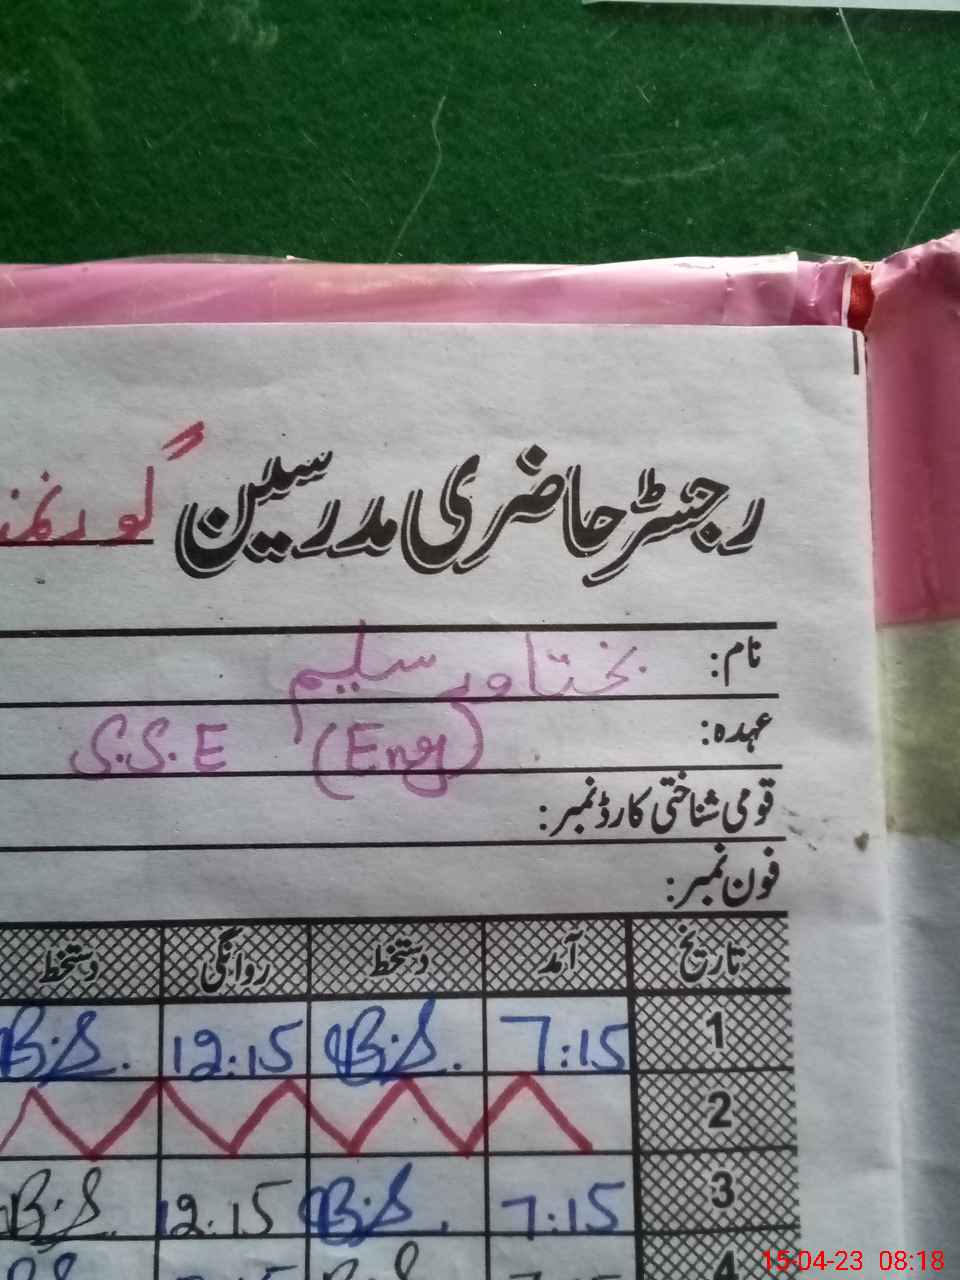 رجسٹر حاضری مدرسین گورنمنٹ
نام: بختاور سلیم
عہدہ: S.S.E (Eng)
قومی شناختی کارڈ نمبر:
فون نمبر:
تاریخ آمد دستخط روانگی دستخط
1 7:15 B.S. 12:15 B.S.
2
3 7:15 B.S. 12:15 B.S.
4
15-04-23 08:18